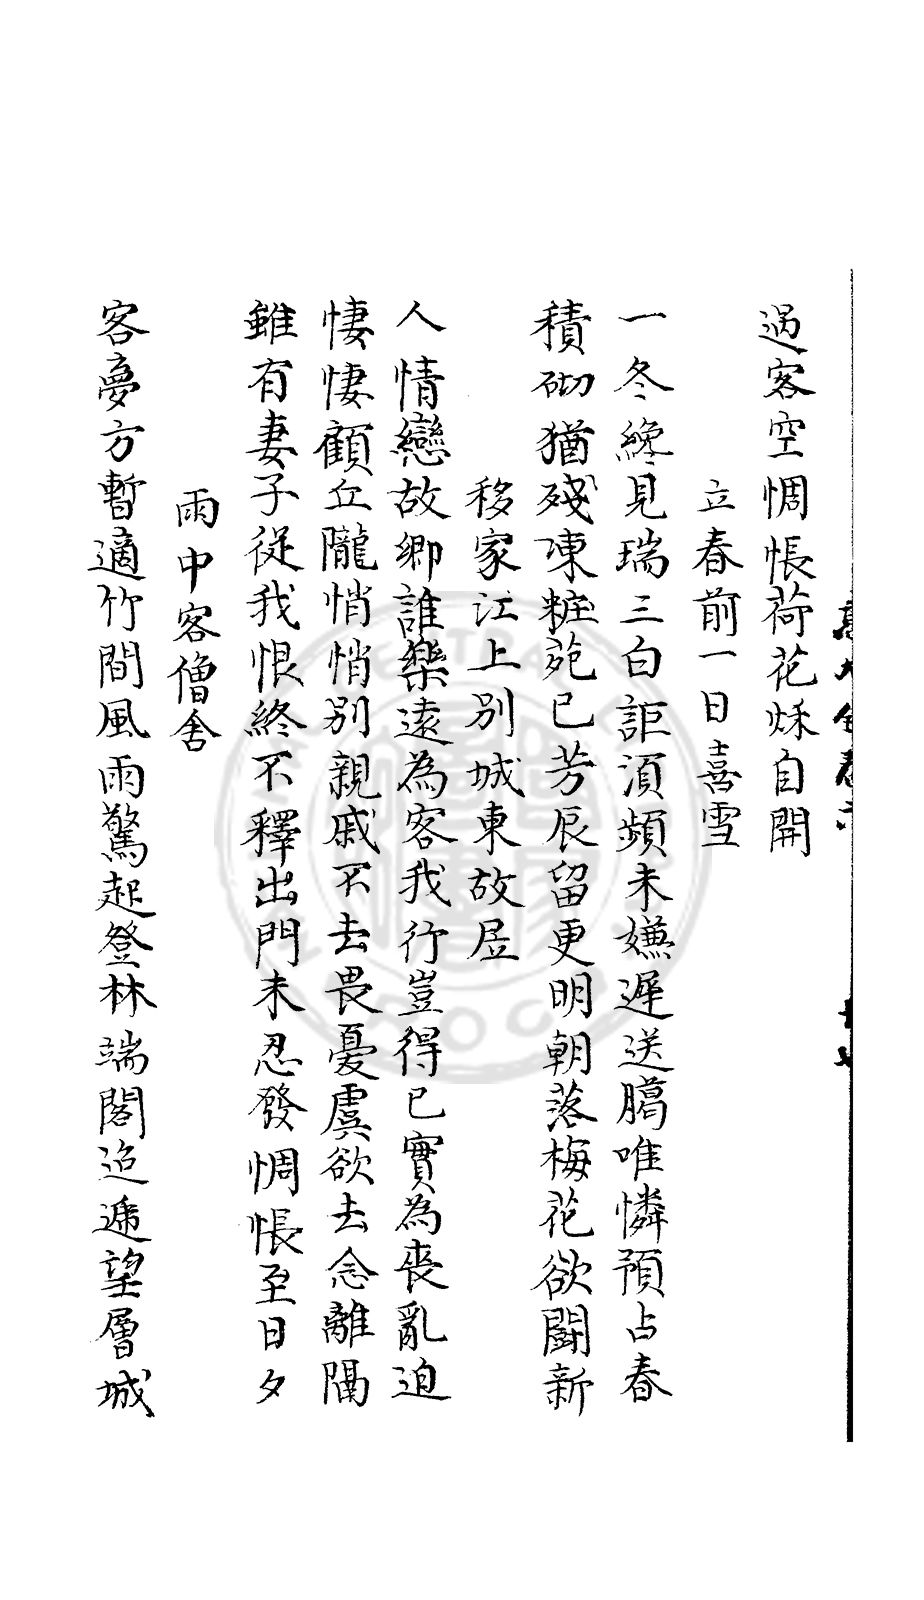 過客空惆悵荷花秌自開
立春前一日喜雪
一冬纔見瑞三白詎須頻未嫌遲送臈唯憐預占春
積砌猶殘凍粧苑已芳辰留更明朝落梅花欲鬪新
移家江上別城東故居
人情戀故鄉誰樂遠為客我行豈得已實為喪亂迫
悽悽顧丘隴悄悄別親戚不去畏憂虞欲去念離隔
雖有妻子從我恨終不釋出門未忍發惆悵至日夕
雨中客僧舍
客夢方暫適竹間風雨驚起登林端閣迢遞望層城